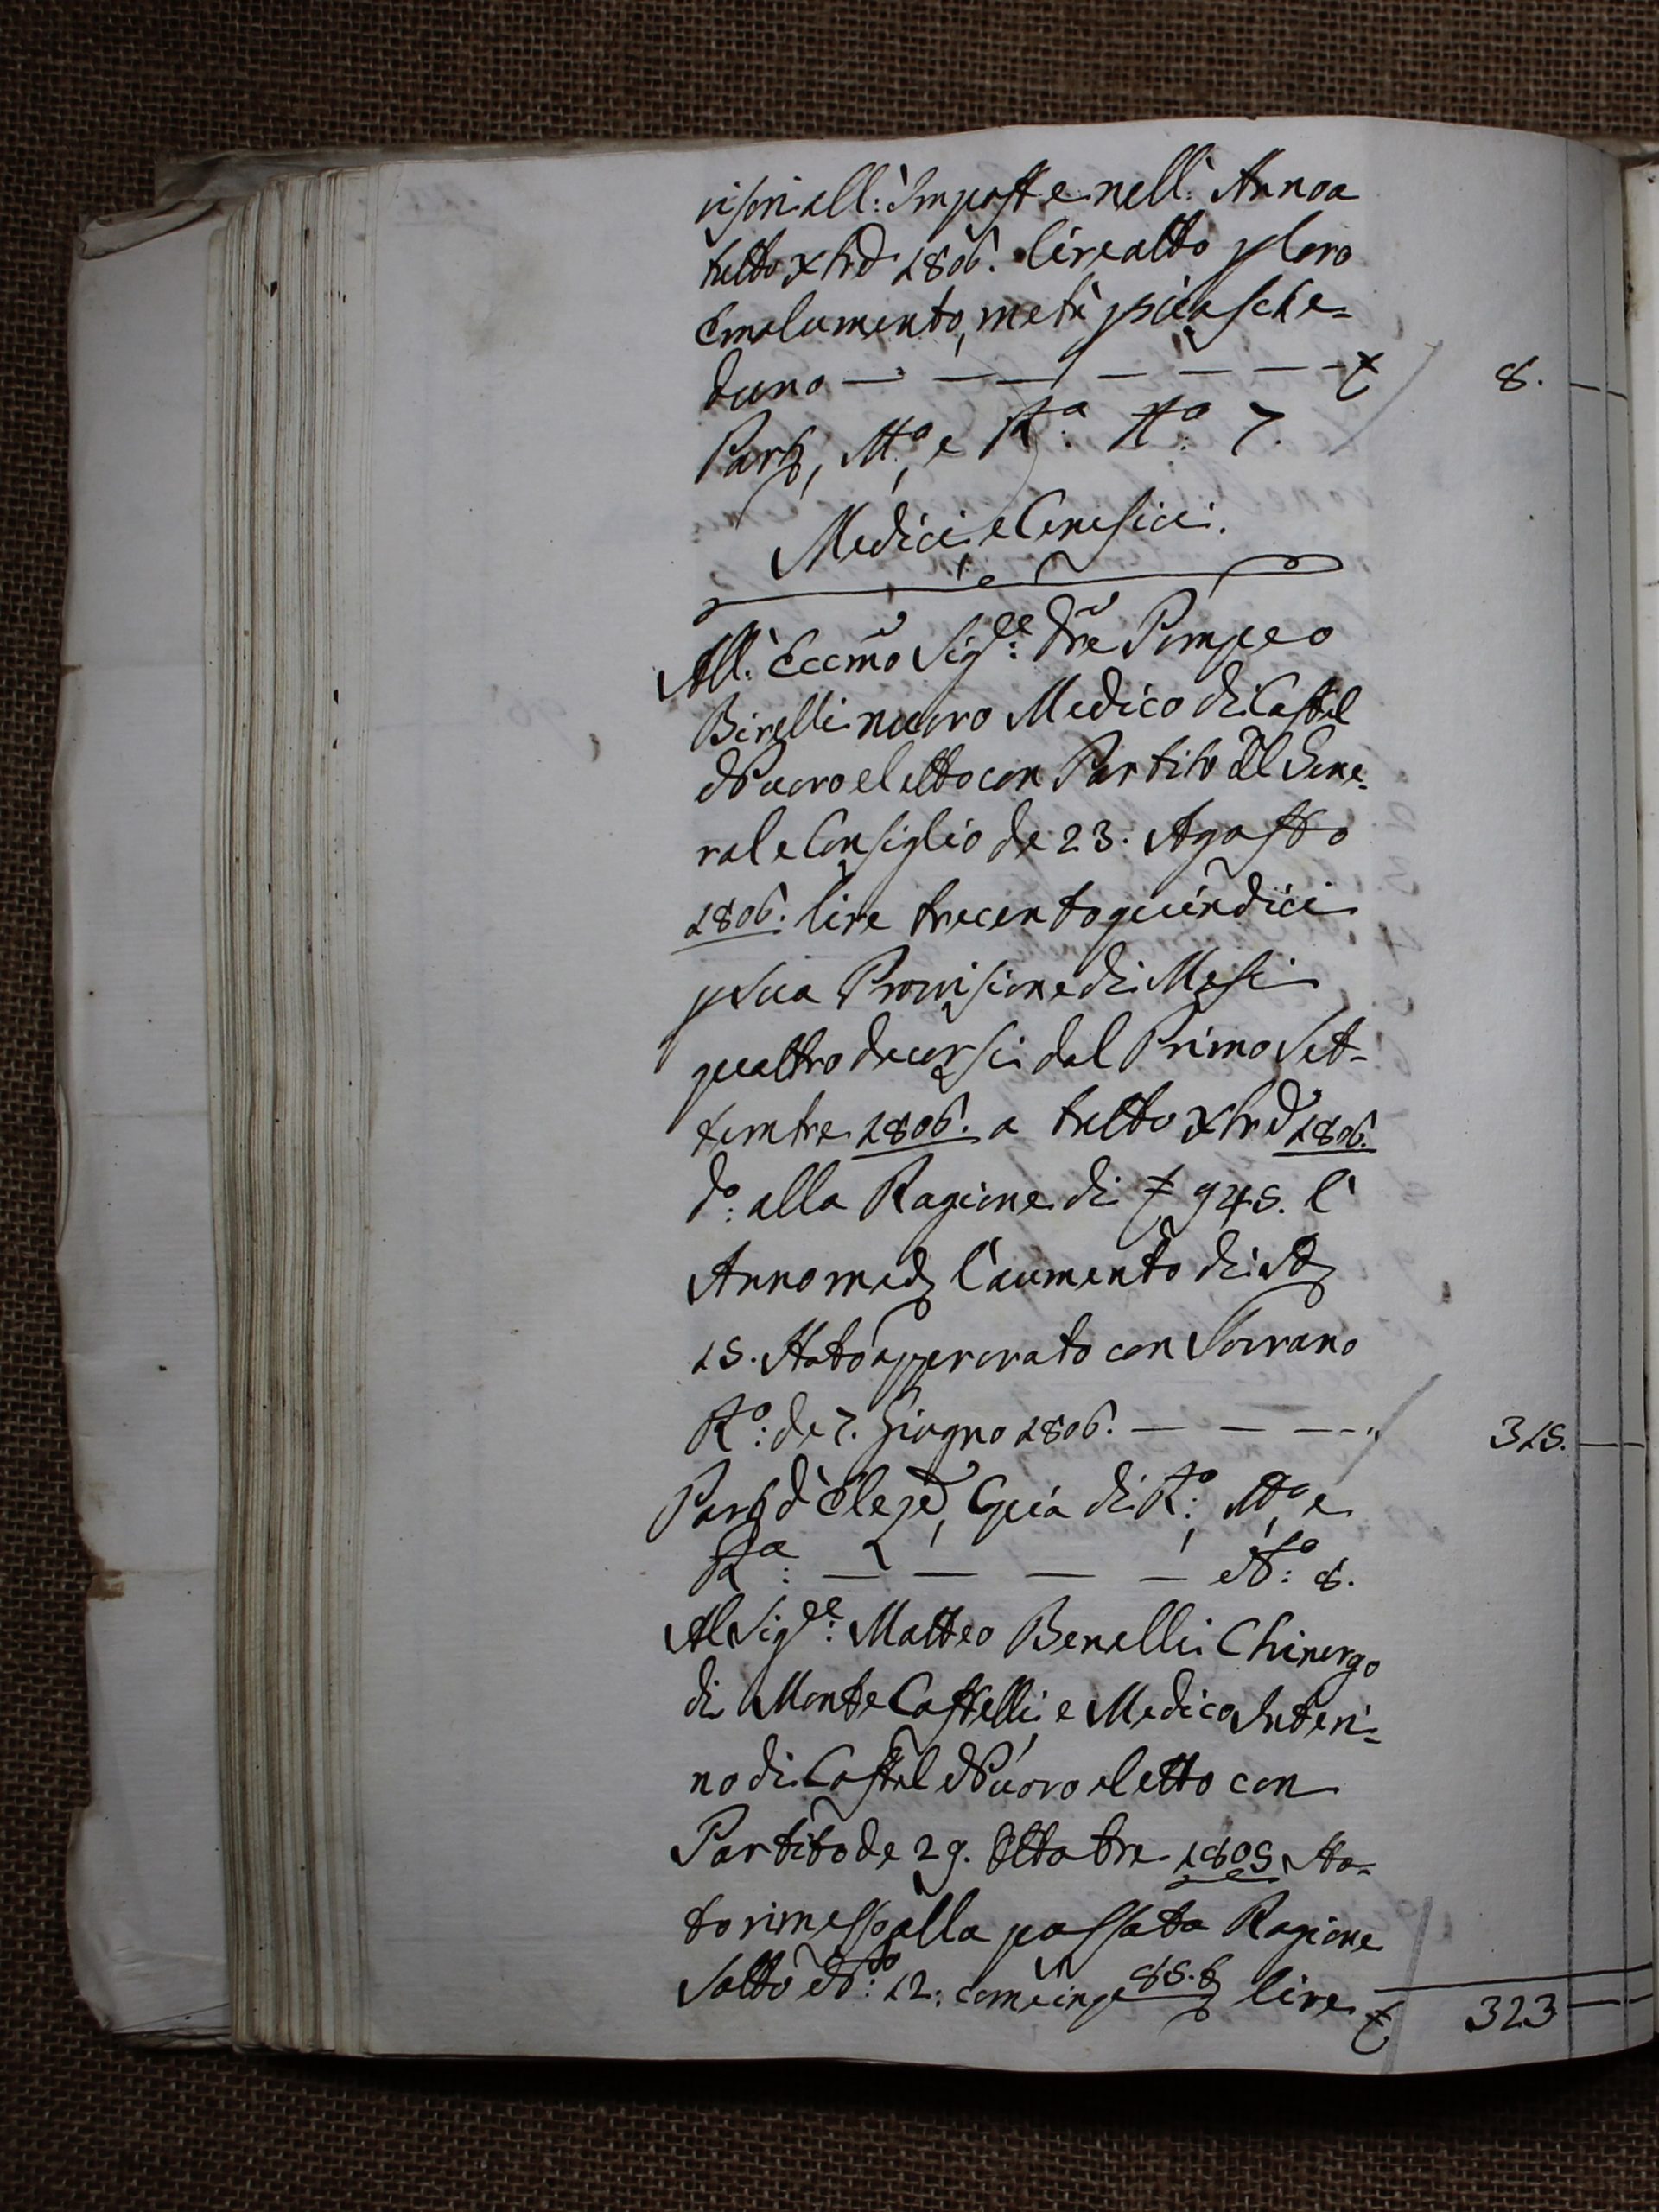 visori all: Imposte nell: Anno a
tutto Xbrē 1806. lire otto p loro
Emolumento, metà p ciasche=
duno — — — — — — — £ 8.
Part., M.o, e R.a N.o 7.
Medici, e Cerusici.
All: Eccmo Sig.re: Dre Pompeo
Birelli nuovo Medico di Castel
Nuovo eletto con Partito del Gene=
rale Consiglio de 23. Agosto
1806. lire trecentoquindici
p sua Provisione di Mesi
quattro decorsi dal Primo Set=
tembre 1806. a tutto Xbrē 1806.
d.o: alla Ragione di £ 945. l'
Anno med. l'aumento di
15. stato approvato con Sovrano
R.o: de 7. Giugno 1806. — — — " 315.
Part. d'Elezē, Copia di R.o:, M.o, e
R.a: — — — — N.o: 8.
Al Sig.re: Matteo Benelli Chirurgo
di Monte Castelli, e Medico Interi=
no di Castel Nuovo eletto con
Partito de 29. Ottobre 1805. sta=
to rimesso alla passata Ragione
Sotto N.o: 12: come in 85. lire £ 323